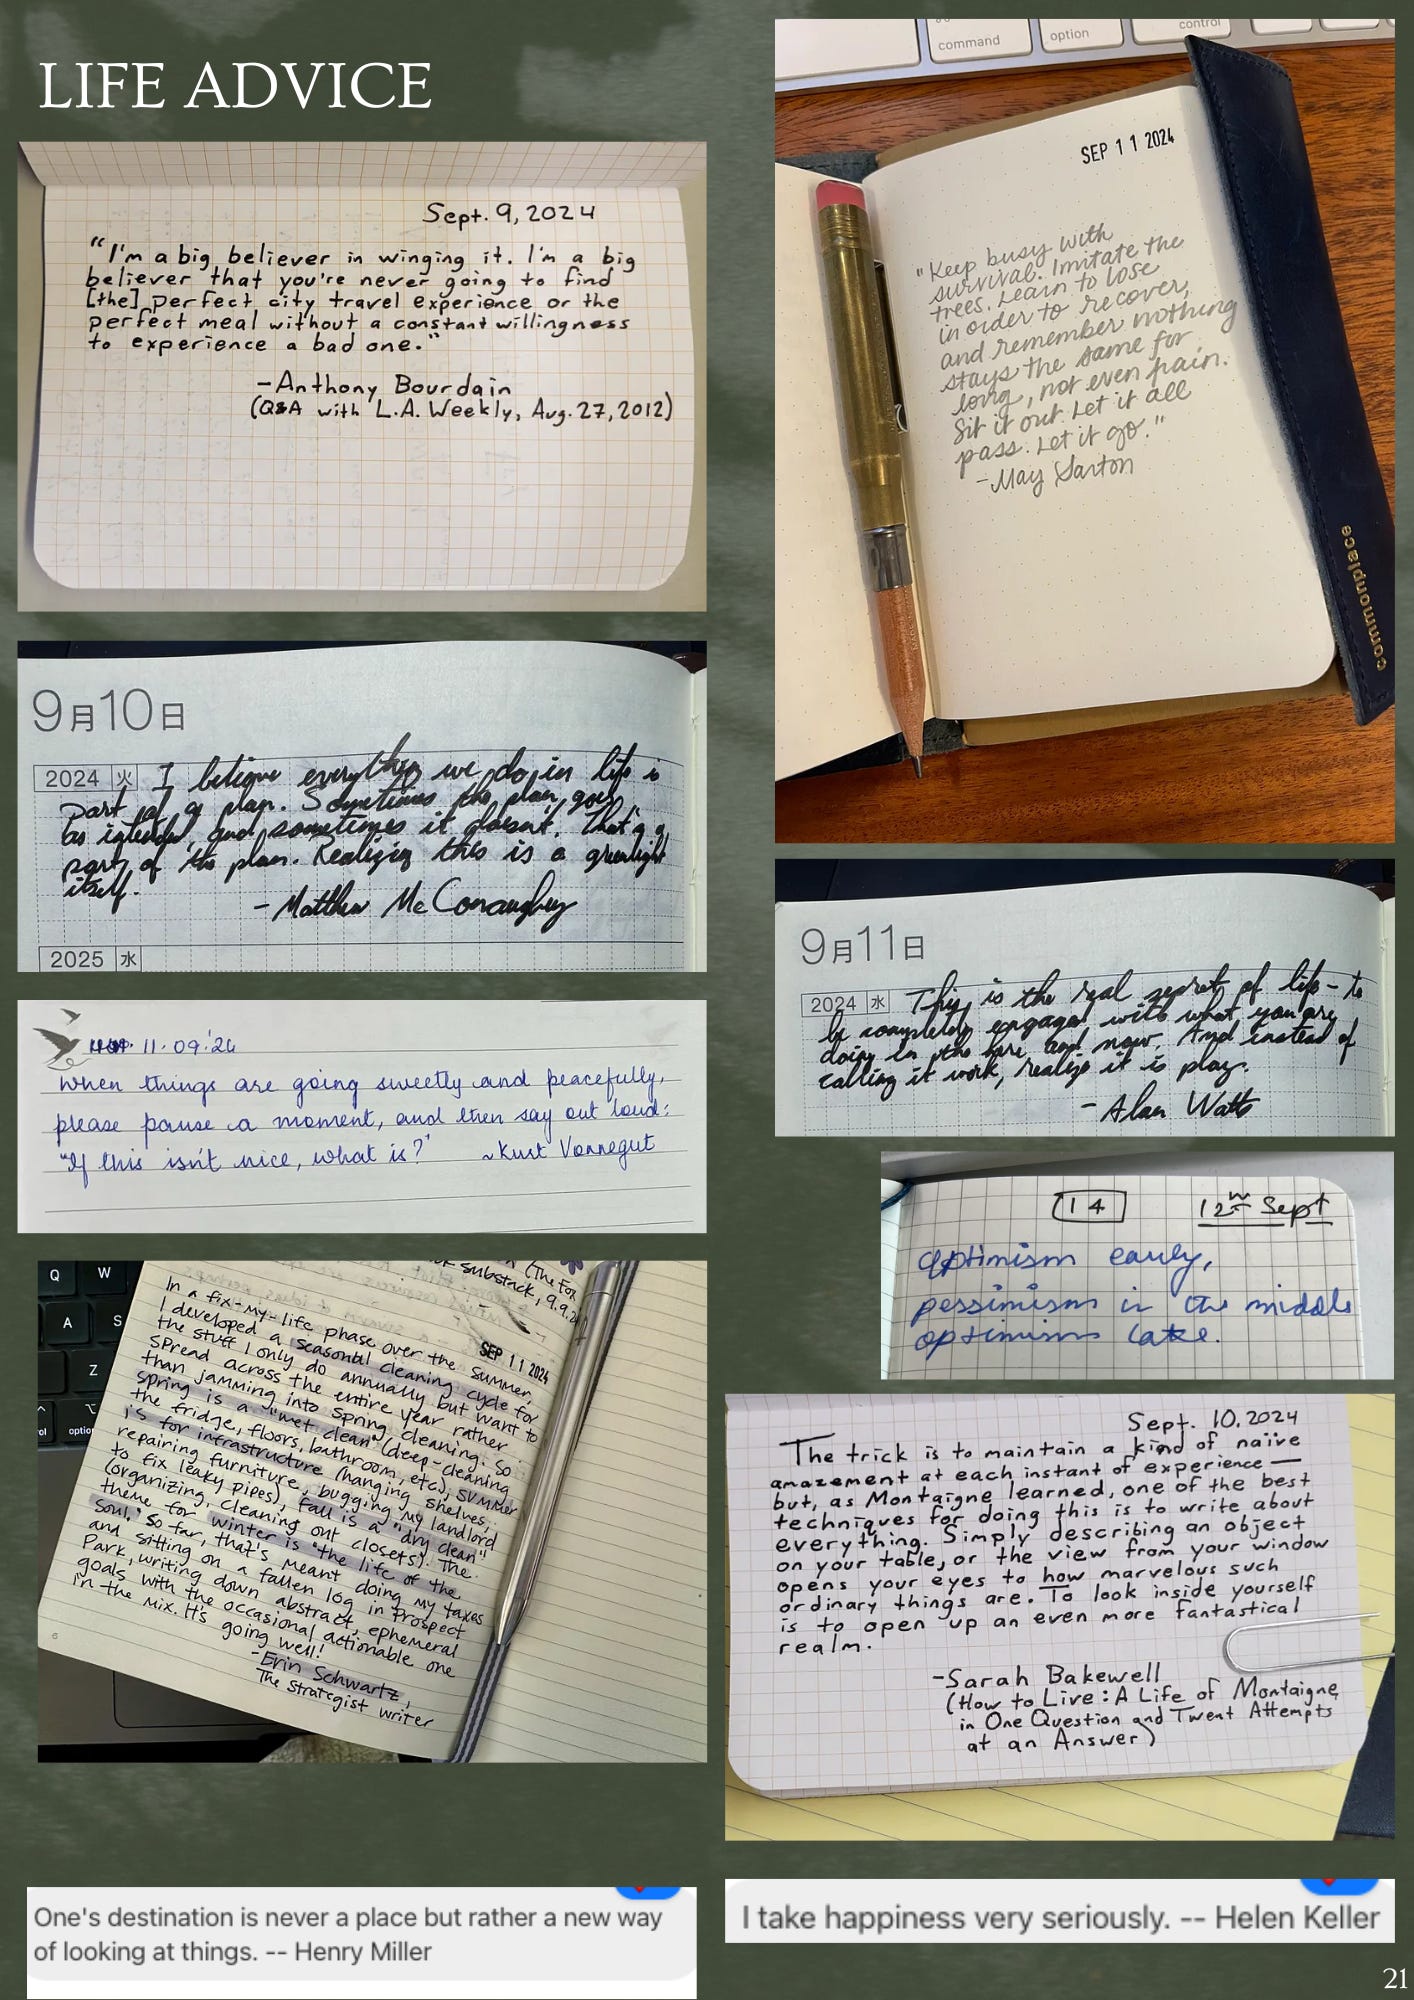 LIFE ADVICE
Sept. 9, 2024
"I'm a big believer in winging it. I'm a big
believer that you're never going to find
[the] perfect city travel experience or the
perfect meal without a constant willingness
to experience a bad one."
-Anthony Bourdain
(Q&A with L.A. Weekly, Aug. 27, 2012)
9月10日
2024 火 I believe everything we do in life is
part of a plan. Sometimes the plan goes
as intended, and sometimes it doesn't. That's a
part of the plan. Realizing this is a greenlight
itself.
- Matthew McConaughey
2025 水
11.09.24
when things are going sweetly and peacefully,
please pause a moment, and then say out loud:
"If this isn't nice, what is?" ~Kurt Vonnegut
Q W
A S
Z
option
(The For
substack, 9.9.2
SEP 11 2024
In a fix-my-life phase over the summer,
I developed a seasonal cleaning cycle for
the stuff I only do annually but want to
spread across the entire year rather
than jamming into spring cleaning. So
spring is a "wet clean" (deep-cleaning
the fridge, floors, bathroom, etc), summer
is for infrastructure (hanging shelves,
repairing furniture, bugging my landlord
to fix leaky pipes), fall is a "dry clean"
(organizing, cleaning out closets). The
theme for winter is "the life of the
soul." So far, that's meant doing my taxes
and sitting on a fallen log in Prospect
Park, writing down abstract, ephemeral
goals with the occasional actionable one
in the mix. It's going well!
-Erin Schwartz,
The Strategist writer
One's destination is never a place but rather a new way
of looking at things. -- Henry Miller
command option control
SEP 11 2024
"Keep busy with
survival. Imitate the
trees. Learn to lose
in order to recover,
and remember nothing
stays the same for
long, not even pain.
Sit it out. Let it all
pass. Let it go."
-May Sarton
commonplace
9月11日
2024 水 This is the real secret of life - to
be completely engaged with what you are
doing in the here and now. And instead of
calling it work, realize it is play.
- Alan Watts
14 12th Sept
Optimism early,
pessimism in the middle
optimism late.
Sept. 10, 2024
The trick is to maintain a kind of naïve
amazement at each instant of experience —
but, as Montaigne learned, one of the best
techniques for doing this is to write about
everything. Simply describing an object
on your table, or the view from your window
opens your eyes to how marvelous such
ordinary things are. To look inside yourself
is to open up an even more fantastical
realm.
-Sarah Bakewell
(How to Live: A Life of Montaigne
in One Question and Twent Attempts
at an Answer)
I take happiness very seriously. -- Helen Keller
21